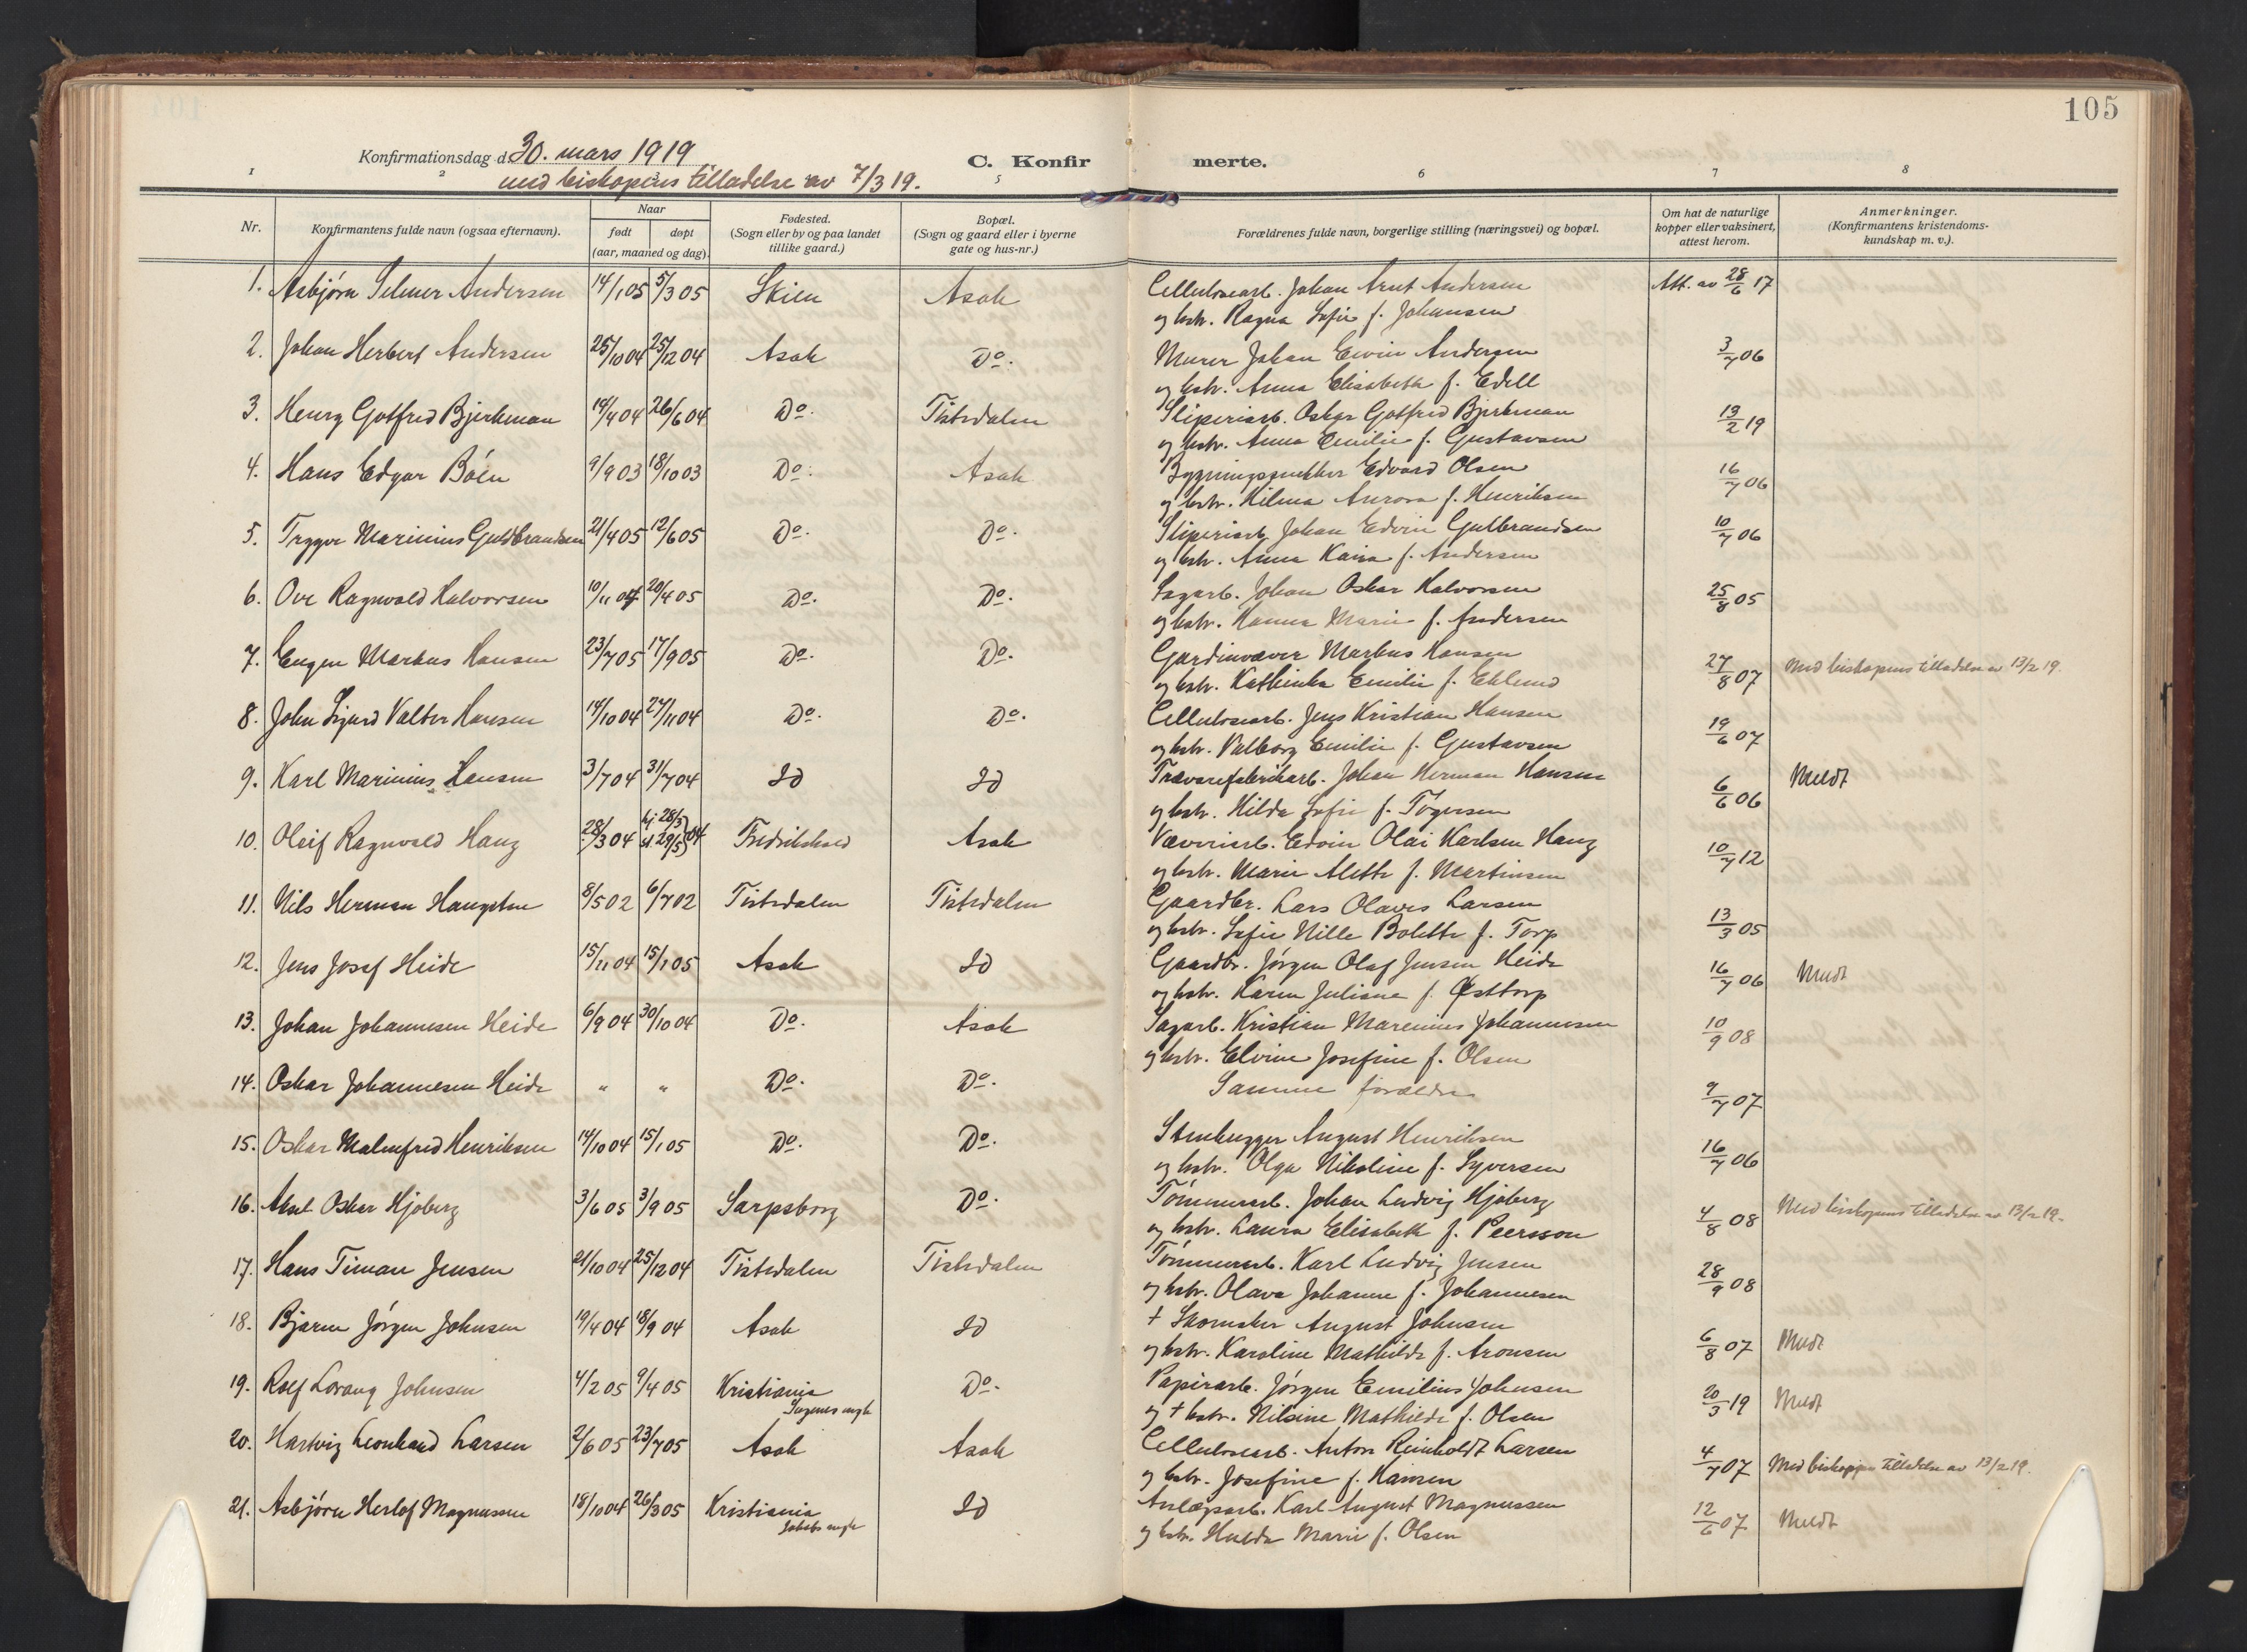 105
Konfirmationsdag d. 30. mars 1919
med biskopens tilladelse av 7/3 19.
C. Konfir merte.
1 2 3 5 6 7 8
Nr. Konfirmantens fulde navn (ogsaa efternavn). Naar født døpt (aar, maaned og dag). Fødested. (Sogn eller by og paa landet tillike gaard.) Bopæl. (Sogn og gaard eller i byerne gate og hus-nr.) Forældrenes fulde navn, borgerlige stilling (næringsvei) og bopæl. Om hat de naturlige kopper eller vaksinert, attest herom. Anmerkninger. (Konfirmantens kristendoms-kundskap m. v.).
1. Asbjørn Selmer Andersen 14/1 05 5/3 05 Skien Asak Cellulosearb. Johan Arnt Andersen Att. av 28/6 17
og hstr. Ragna Sofie f. Johansen
2. Johan Herbert Andersen 25/10 04 25/12 04 Asak Do. Murer Johan Edvin Andersen 3/7 06
og hstr. Anna Elisabeth f. Edell
3. Henry Gotfred Bjerkman 14/4 04 26/6 04 Do. Tistedalen Sliperiarb. Oskar Gotfred Bjerkman 13/2 19
og hstr. Anna Emilie f. Gustavsen
4. Hans Edgar Boén 9/9 03 18/10 03 Do. Asak Bygningssnekker Edvard Olsen 16/7 06
og hstr. Hilma Aurora f. Henriksen
5. Trygve Marinius Guldbrandsen 21/4 05 12/6 05 Do. Do. Sliperiarb. Johan Edvin Gulbrandsen 10/7 06
og hstr. Anna Kaisa f. Andersen
6. Ove Ragnvald Halvorsen 10/11 04 20/4 05 Do. Do. Sagarb. Johan Oskar Halvorsen 25/8 05
og hstr. Hanna Marie f. Andersen
7. Eugen Markus Hansen 23/7 05 17/9 05 Do. Do. Gardinvæver Markus Hansen 27/8 07 Med biskopens tilladelse av 13/2 19.
og hstr. Kathinka Emilie f. Eklund
8. John Sigurd Valter Hansen 14/10 04 27/11 04 Do. Do. Cellulosearb. Jens Kristian Hansen 19/6 07
og hstr. Valborg Emilie f. Gustavsen
9. Karl Marinius Hansen 3/7 04 31/7 04 Id Id Trævarefabrikarb. Johan Herman Hansen 6/6 06 Meldt
og hstr. Hilda Sofie f. Togersen
10. Oleif Ragnvald Haug 28/3 04 hj. 28/3 st. 29/5 04 Fredrikshald Asak Væveriarb. Edvin Olai Karlsen Haug 10/7 12
og hstr. Marie Alette f. Martinsen
11. Nils Herman Haugsten 8/5 02 6/7 02 Tistedalen Tistedalen Gaardbr. Lars Olaves Larsen 13/3 05
og hstr. Sofie Nille Bolette f. Torp
12. Jens Josef Heide 15/11 04 15/1 05 Asak Id Gaardbr. Jørgen Olaf Jensen Heide 16/7 06 Meldt
og hstr. Karen Juliane f. Østtorp
13. Johan Johannesen Heide 6/9 04 30/10 04 Do. Asak Sagarb. Kristian Marenius Johannesen 10/9 08
og hstr. Elvine Josefine f. Olsen
14. Oskar Johannesen Heide " " Do. Do. Samme forældre 9/7 07
15. Oskar Malmfred Henriksen 14/10 04 15/1 05 Do. Do. Stenhugger August Henriksen 16/7 06
og hstr. Olga Nikoline f. Syversen
16. Aksel Oskar Hjøberg 3/6 05 3/9 05 Sarpsborg Do. Tømmerarb. Johan Ludvig Hjøberg 4/8 08 Med biskopens tilladelse av 13/2 19.
og hstr. Laura Elisabeth f. Peersson
17. Hans Timan Jensen 21/10 04 25/12 04 Tistedalen Tistedalen Tømmerarb. Karl Ludvig Jensen 28/9 08
og hstr. Olava Johanne f. Johannesen
18. Bjarne Jørgen Johnsen 19/4 04 18/9 04 Asak Id † Skomaker August Johnsen 6/8 07 Meldt
og hstr. Karoline Mathilde f. Aronsen
19. Rolf Lorang Johnsen 4/2 05 9/4 05 Kristiania Do. Papirarb. Jørgen Emilius Johnsen 20/3 19 Meldt
Sagenes mgh og † hstr. Nilsine Mathilde f. Olsen
20. Hartvig Leonhard Larsen 2/6 05 23/7 05 Asak Asak Cellulosearb. Anton Reinholdt Larsen 4/7 07 Med biskopens tilladelse av 13/2 19.
og hstr. Josefine f. Hansen
21. Asbjørn Herlof Magnussen 18/10 04 26/3 05 Kristiania Id Anlægsarb. Karl August Magnussen 12/6 07 Meldt
Jakobs mgh og hstr. Hulda Marie f. Olsen